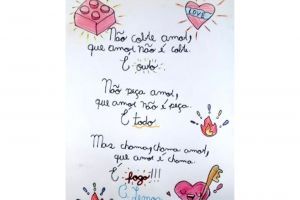 LOVE
Não cobre amor,
que amor não é cobre.
É ouro.
Não peça amor,
que amor não é peça.
É todo
Mas chama, chama amor,
que amor é chama.
É fogo!!!